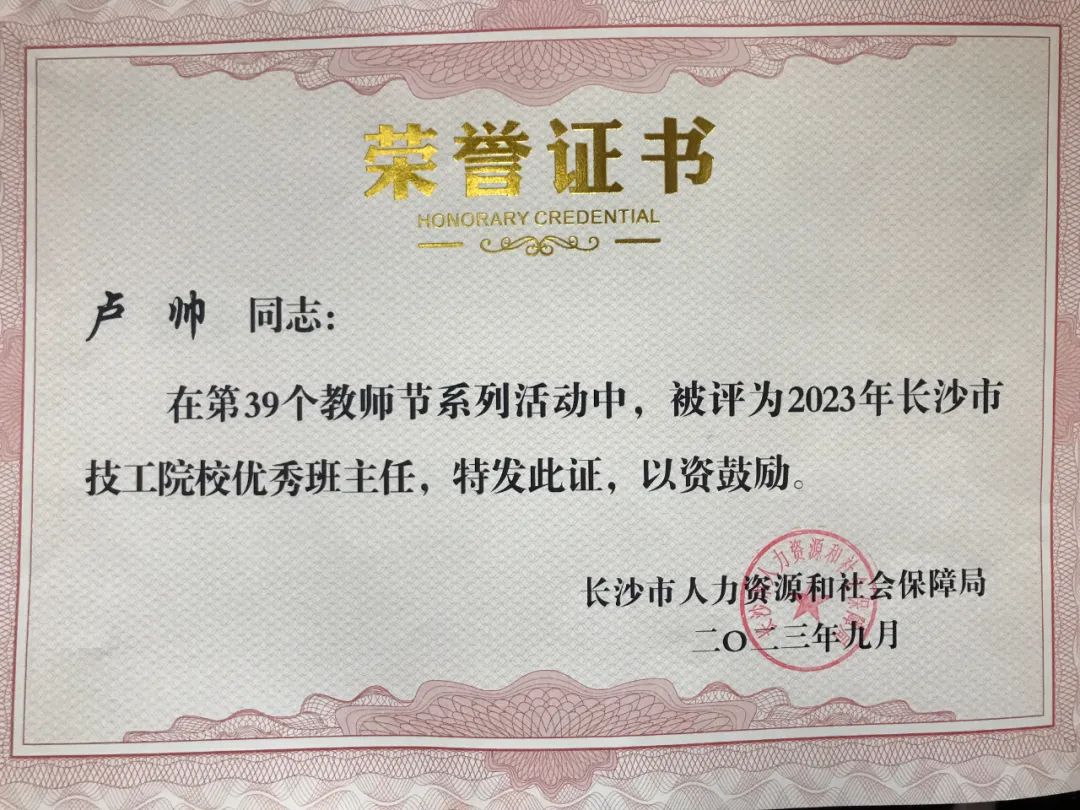 荣誉证书
HONORARY CREDENTIAL
卢 帅 同志：
在第39个教师节系列活动中，被评为2023年长沙市
技工院校优秀班主任，特发此证，以资鼓励。
长沙市人力资源和社会保障局
二〇二三年九月
长沙市人力资源和社会保障局